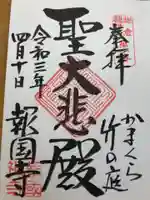 奉拝
かまくら
竹の庭
聖大悲殿
令和三年
四月十日
報国寺